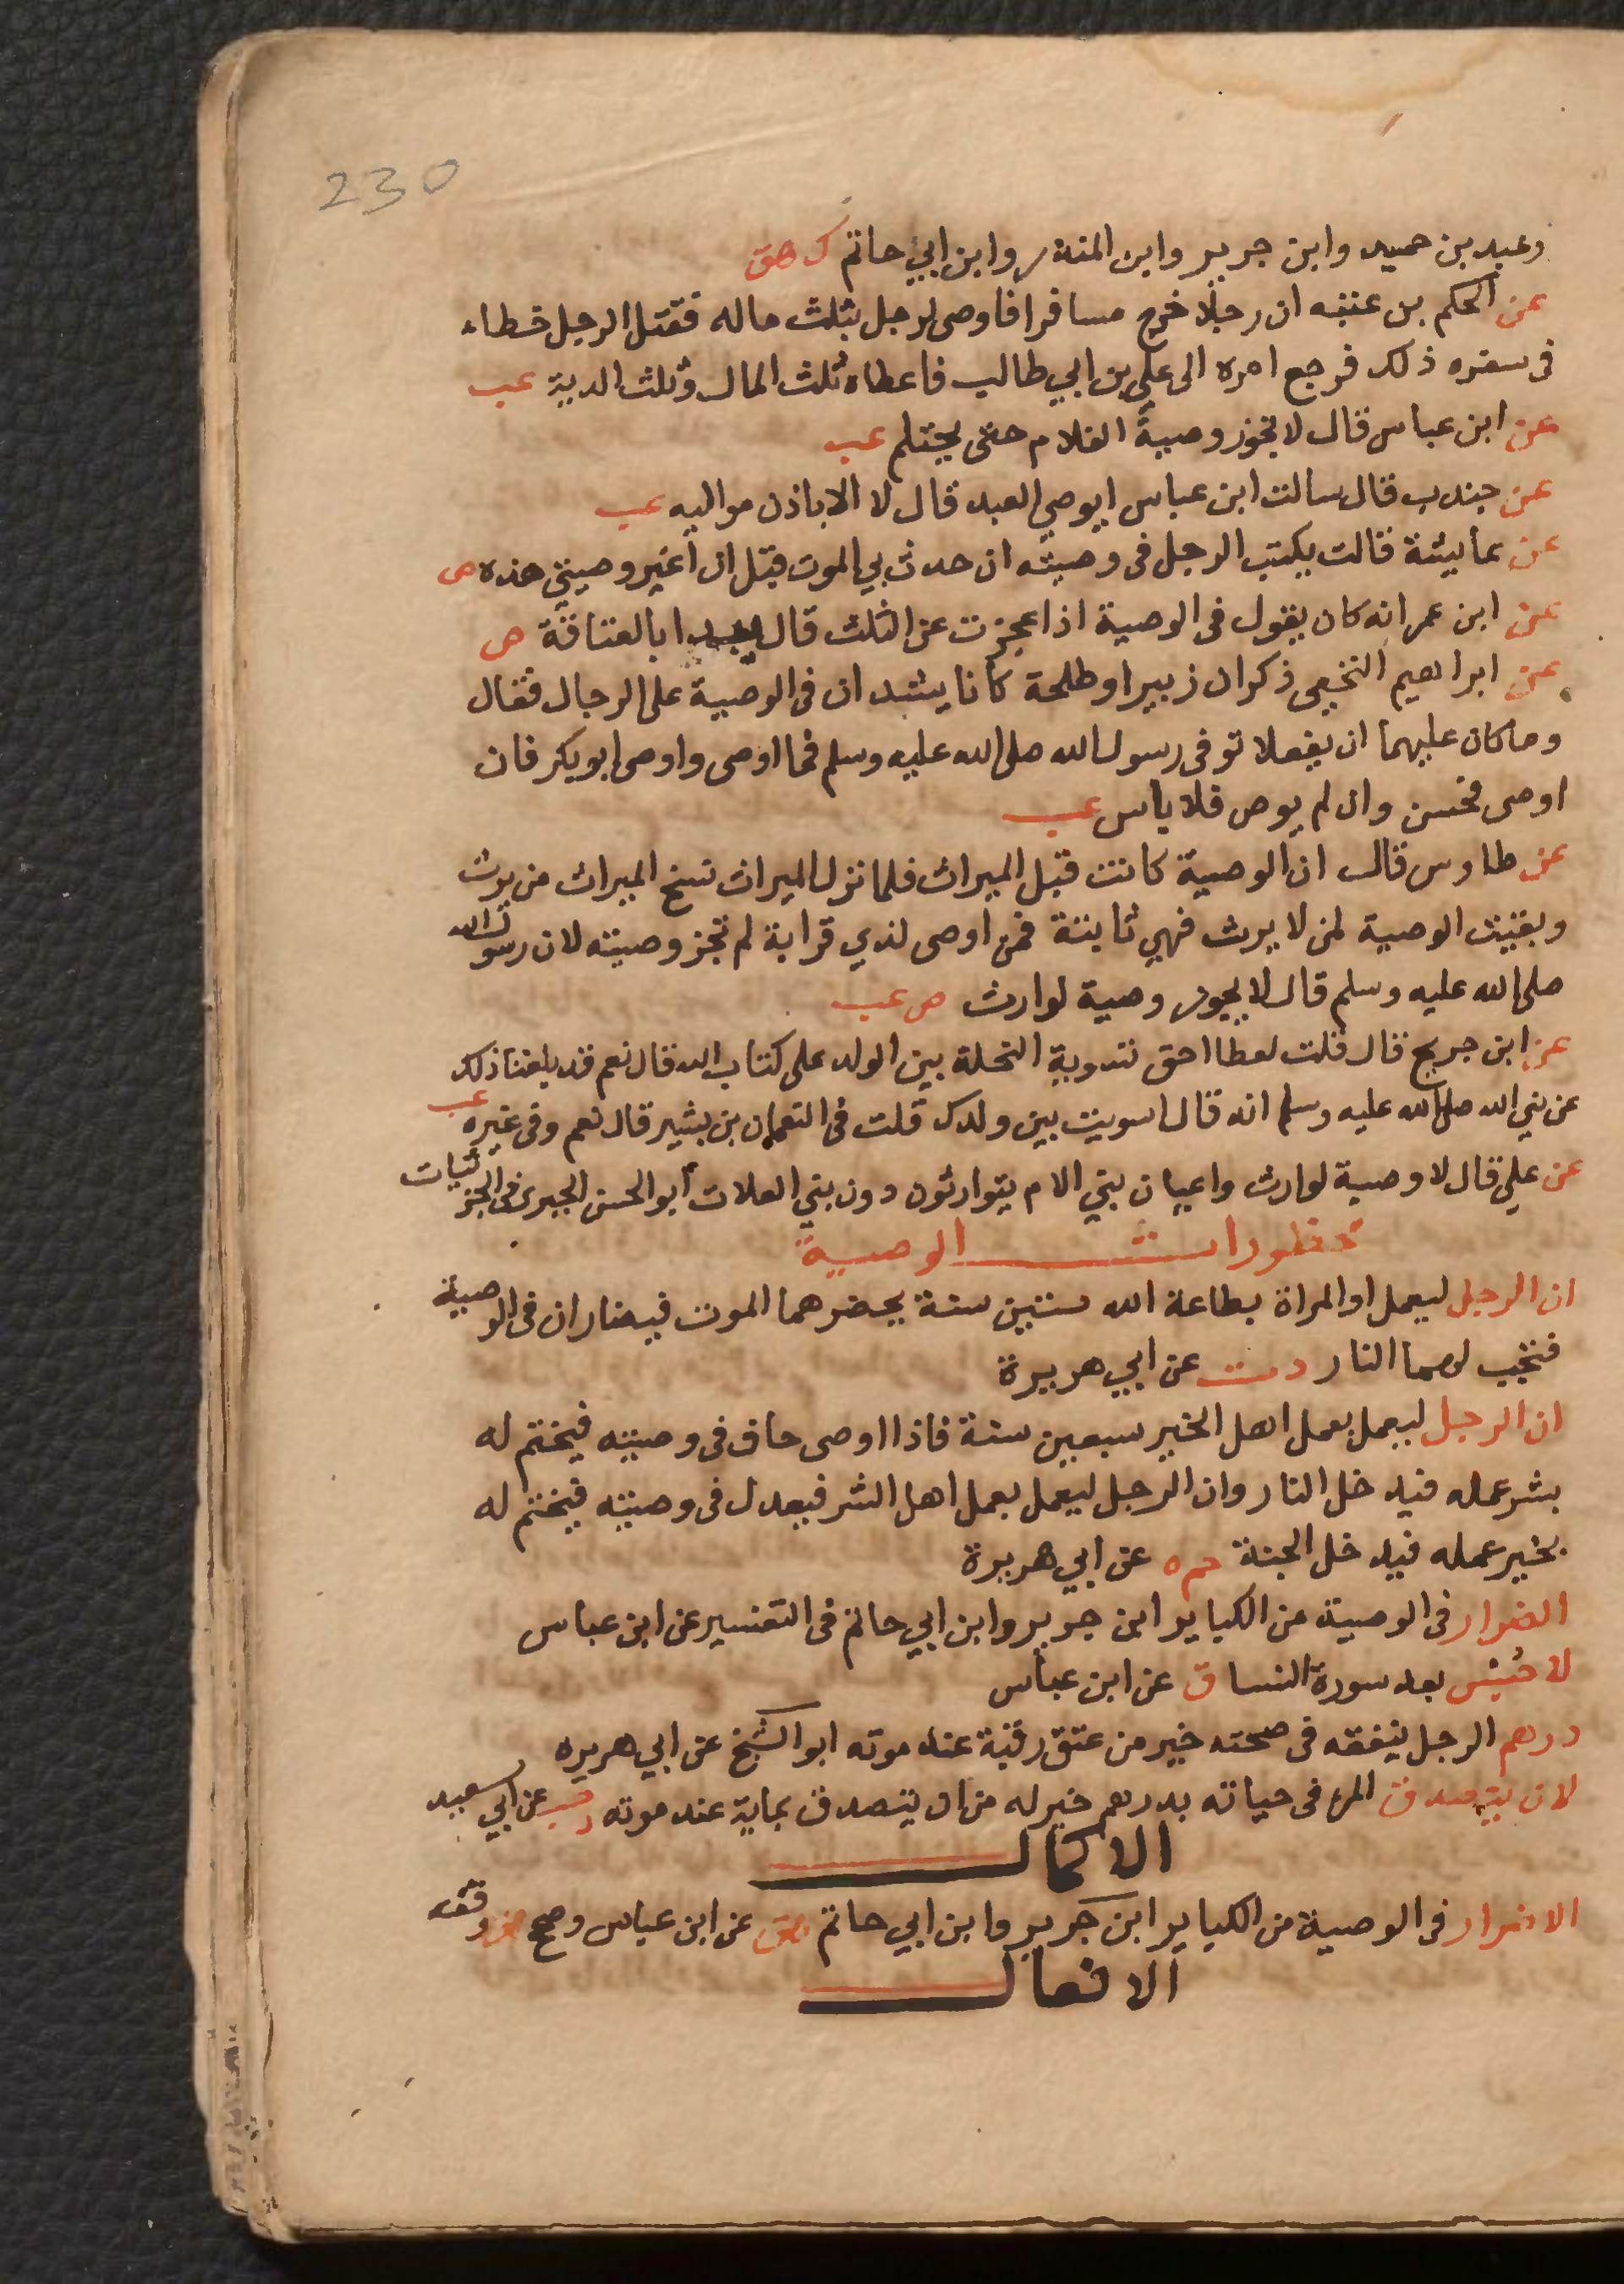 230
وعبد بن حميد وابن جرير وابن المنذر وابن ابي حاتم ك هق
عن الحكم بن عتيبه ان رجلا خرج مسافرا فاوصى لرجل بثلث ماله فقتل الرجل خطاء
فى سفره ذلك فرجع امره الى علي بن ابي طالب فاعطاه ثلث المال وثلث الدية عب
عن ابن عباس قال لا تجوز وصية الغلام حتى يحتلم عب
عن جندب قال سالت ابن عباس ايوصي العبد قال لا الا باذن مواليه عب
عن عايشة قالت يكتب الرجل فى وصيته ان حدث بي الموت قبل ان اغير وصيتي هذه ص
عن ابن عمر انه كان يقول فى الوصية اذا عجزت عن الثلث قال يبدا بالعتاقة ص
عن ابراهيم النخعي ذكر ان زبيرا وطلحة كانا يشددان فى الوصية على الرجال فقال
وما كان عليهما ان يفعلا توفى رسول الله صلى الله عليه وسلم فما اوصى واوصى ابو بكر فان
اوصى فحسن وان لم يوص فلا باس عب
عن طاوس قال ان الوصية كانت قبل الميراث فلما نزل الميراث نسخ الميراث من يرث
وبقيت الوصية لمن لا يرث فهي ثابتة فمن اوصى لذي قرابة لم تجز وصيته لان رسول الله
صلى الله عليه وسلم قال لا يجوز وصية لوارث ص عب
عن ابن جريج قال قلت لعطا احق تسوية النحلة بين الولد على كتاب الله قال نعم قد بلغنا ذلك
عن نبي الله صلى الله عليه وسلم انه قال اسويت بين ولدك قلت فى النعمان بن بشير قال نعم وفى غيره عب
عن علي قال لا وصية لوارث واعيان بني الام يتوارثون دون بني العلات ابو الحسن الجبرى فى الجزئيات
محظورات الوصية
ان الرجل ليعمل او المراة بطاعة الله ستين سنة يحضرهما الموت فيضاران فى الوصية
فتجب لهما النار د ت عن ابي هريرة
ان الرجل ليعمل بعمل اهل الخير سبعين سنة فاذا اوصى حاف فى وصيته فيختم له
بشر عمله فيدخل النار وان الرجل ليعمل بعمل اهل الشر فيعدل فى وصيته فيختم له
بخير عمله فيدخل الجنة حم ه عن ابي هريرة
الضرار فى الوصية من الكباير ابن جرير وابن ابي حاتم فى التفسير عن ابن عباس
لا حُبْس بعد سورة النسا ق عن ابن عباس
درهم الرجل ينفقه فى صحته خير من عتق رقبة عند موته ابو الشيخ عن ابي هريره
لان يتصدق المرء فى حياته بدرهم خير له من ان يتصدق بماية عند موته د حب عن ابي سعيد
الاكمال
الاضرار فى الوصية من الكباير ابن جرير وابن ابي حاتم هق عن ابن عباس وصحح هق وقفه
الافعال